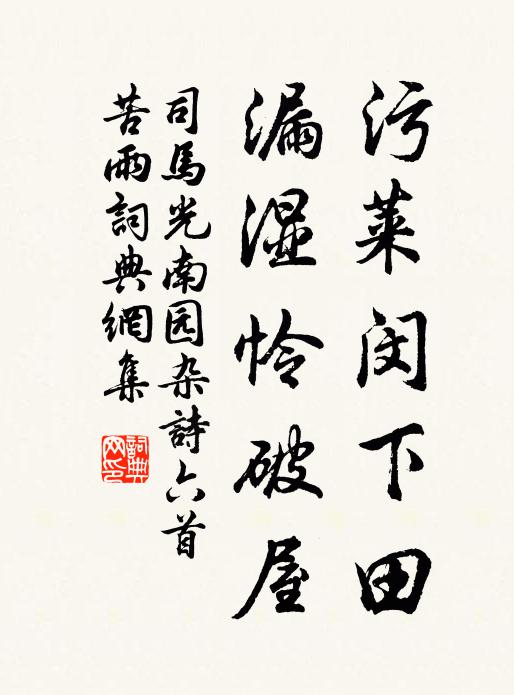 污莱闵下田
漏湿怜破屋
司馬光南园杂詩六首
苦雨詞典網集
詞典网印